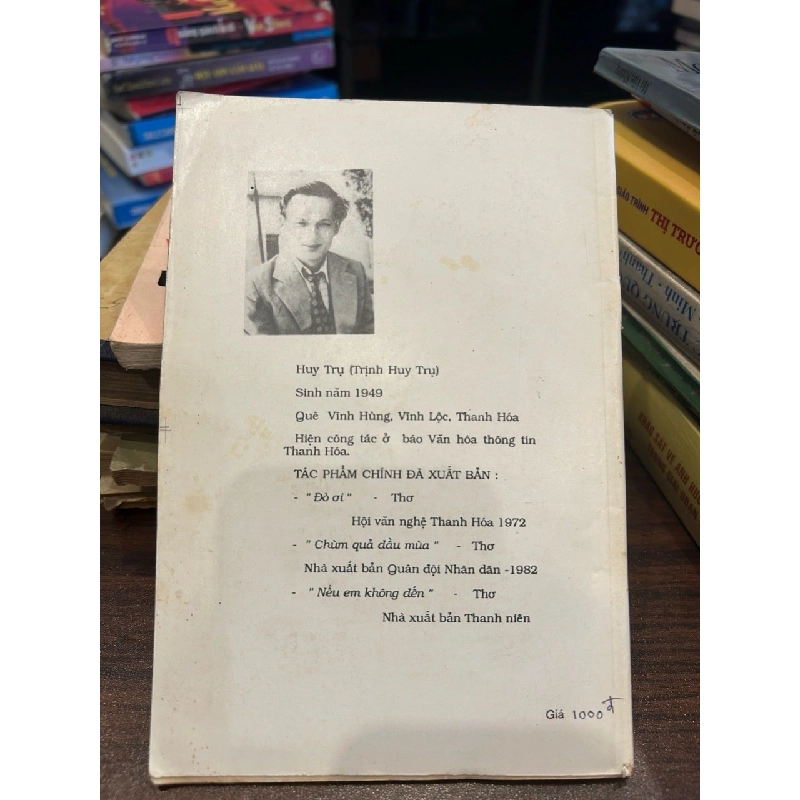 Huy Trụ (Trịnh Huy Trụ)
Sinh năm 1949
Quê Vĩnh Hùng, Vĩnh Lộc, Thanh Hóa
Hiện công tác ở báo Văn hóa thông tin
Thanh Hóa.
TÁC PHẨM CHÍNH ĐÃ XUẤT BẢN :
- " Đò ơi " - Thơ
Hội văn nghệ Thanh Hóa 1972
- " Chùm quả đầu mùa " - Thơ
Nhà xuất bản Quân đội Nhân dân -1982
- " Nếu em không đến " - Thơ
Nhà xuất bản Thanh niên
Giá 1000đ
GIÁO TRÌNH THỊ TRƯ
TRUNG QU
Minh - Thanh